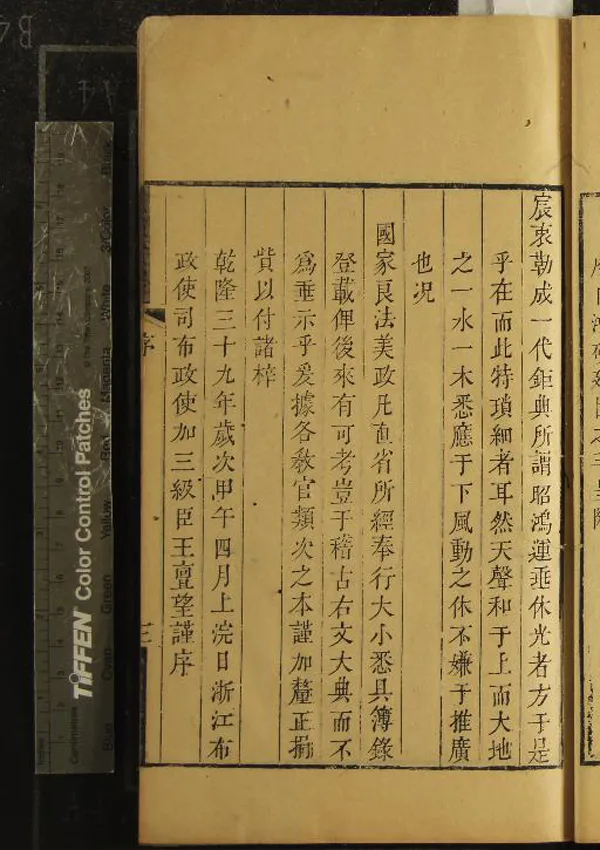 宸衷勒成一代鉅典所謂昭鴻運垂休光者方于是
乎在而此特瑣細者耳然天聲和于上而大地
之一水一木悉應于下風動之休不嫌于推廣
也况
國家良法美政凡直省所經奉行大小悉具簿錄
登載俾後來有可考豈于稽古右文大典而不
爲垂示乎爰據各敎官類次之本謹加釐正捐
貲以付諸梓
乾隆三十九年歲次甲午四月上浣日浙江布
政使司布政使加三級臣王亶望謹序
序
三
TIFFEN Color Control Patches
Blue
Cyan
Green
Yellow
Red
Magenta
White
3/Color
Black
Centimetres